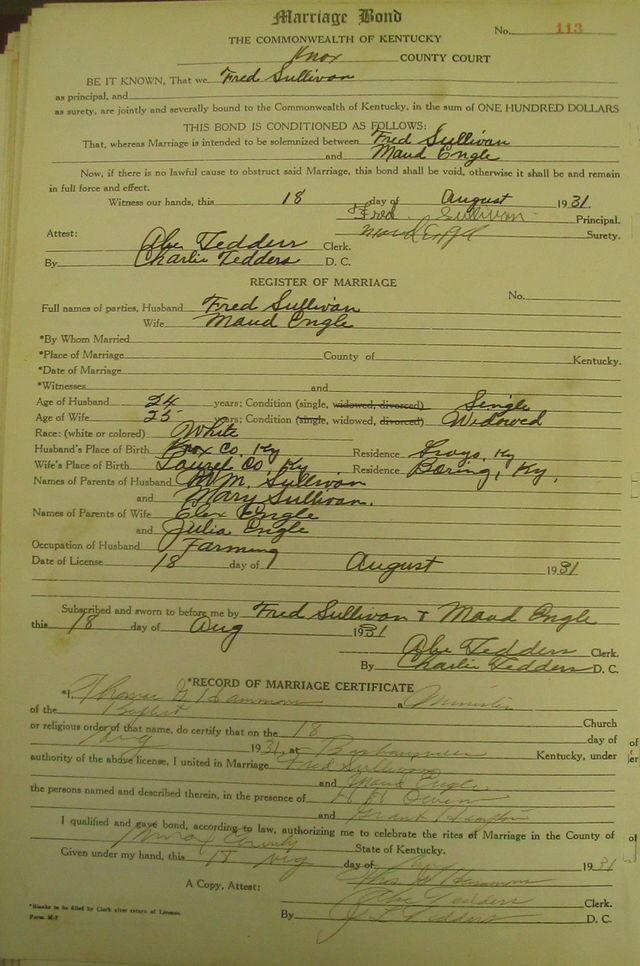 Marriage Bond
No. 113
THE COMMONWEALTH OF KENTUCKY
Knox COUNTY COURT
BE IT KNOWN, That we Fred Sullivan
as principal, and
as surety, are jointly and severally bound to the Commonwealth of Kentucky, in the sum of ONE HUNDRED DOLLARS
THIS BOND IS CONDITIONED AS FOLLOWS:
That, whereas Marriage is intended to be solemnized between Fred Sullivan
and Maud Engle
Now, if there is no lawful cause to obstruct said Marriage, this bond shall be void, otherwise it shall be and remain
in full force and effect.
Witness our hands, this 18 day of August 1931
Fred Sullivan Principal.
Maud Engle Surety.
Attest:
Abe Tedders Clerk.
By Charlie Tedders D. C.
REGISTER OF MARRIAGE
No.
Full names of parties, Husband Fred Sullivan
Wife Maud Engle
*By Whom Married
*Place of Marriage County of Kentucky.
*Date of Marriage
*Witnesses and
Age of Husband 24 years; Condition (single, widowed, divorced) Single
Age of Wife 25 years; Condition (single, widowed, divorced) Widowed
Race: (white or colored) White
Husband's Place of Birth Knox Co. Ky Residence Ky
Wife's Place of Birth Laurel Co, Ky. Residence Boring, Ky.
Names of Parents of Husband W.M. Sullivan
and Mary Sullivan.
Names of Parents of Wife Elex Engle
and Julia Engle
Occupation of Husband Farming
Date of License 18 day of August 1931
Subscribed and sworn to before me by Fred Sullivan & Maud Engle
this 18 day of Aug 1931
Abe Tedders Clerk.
By Charlie Tedders D. C.
*RECORD OF MARRIAGE CERTIFICATE
*I, Hammons a Minister
of the Baptist Church
or religious order of that name, do certify that on the 18 day of
Aug 1931, at Kentucky, under
authority of the above license, I united in Marriage Fred Sullivan
and Maud Engle
the persons named and described therein, in the presence of H H Owen
and Grant Hampton
I qualified and gave bond, according to law, authorizing me to celebrate the rites of Marriage in the County of
Knox County State of Kentucky.
Given under my hand, this 18 day of 1931
Hammons
A Copy, Attest: Abe Tedders Clerk.
By J L Tedders D. C.
*Blanks to be filled by Clerk after return of License.
Form M-7